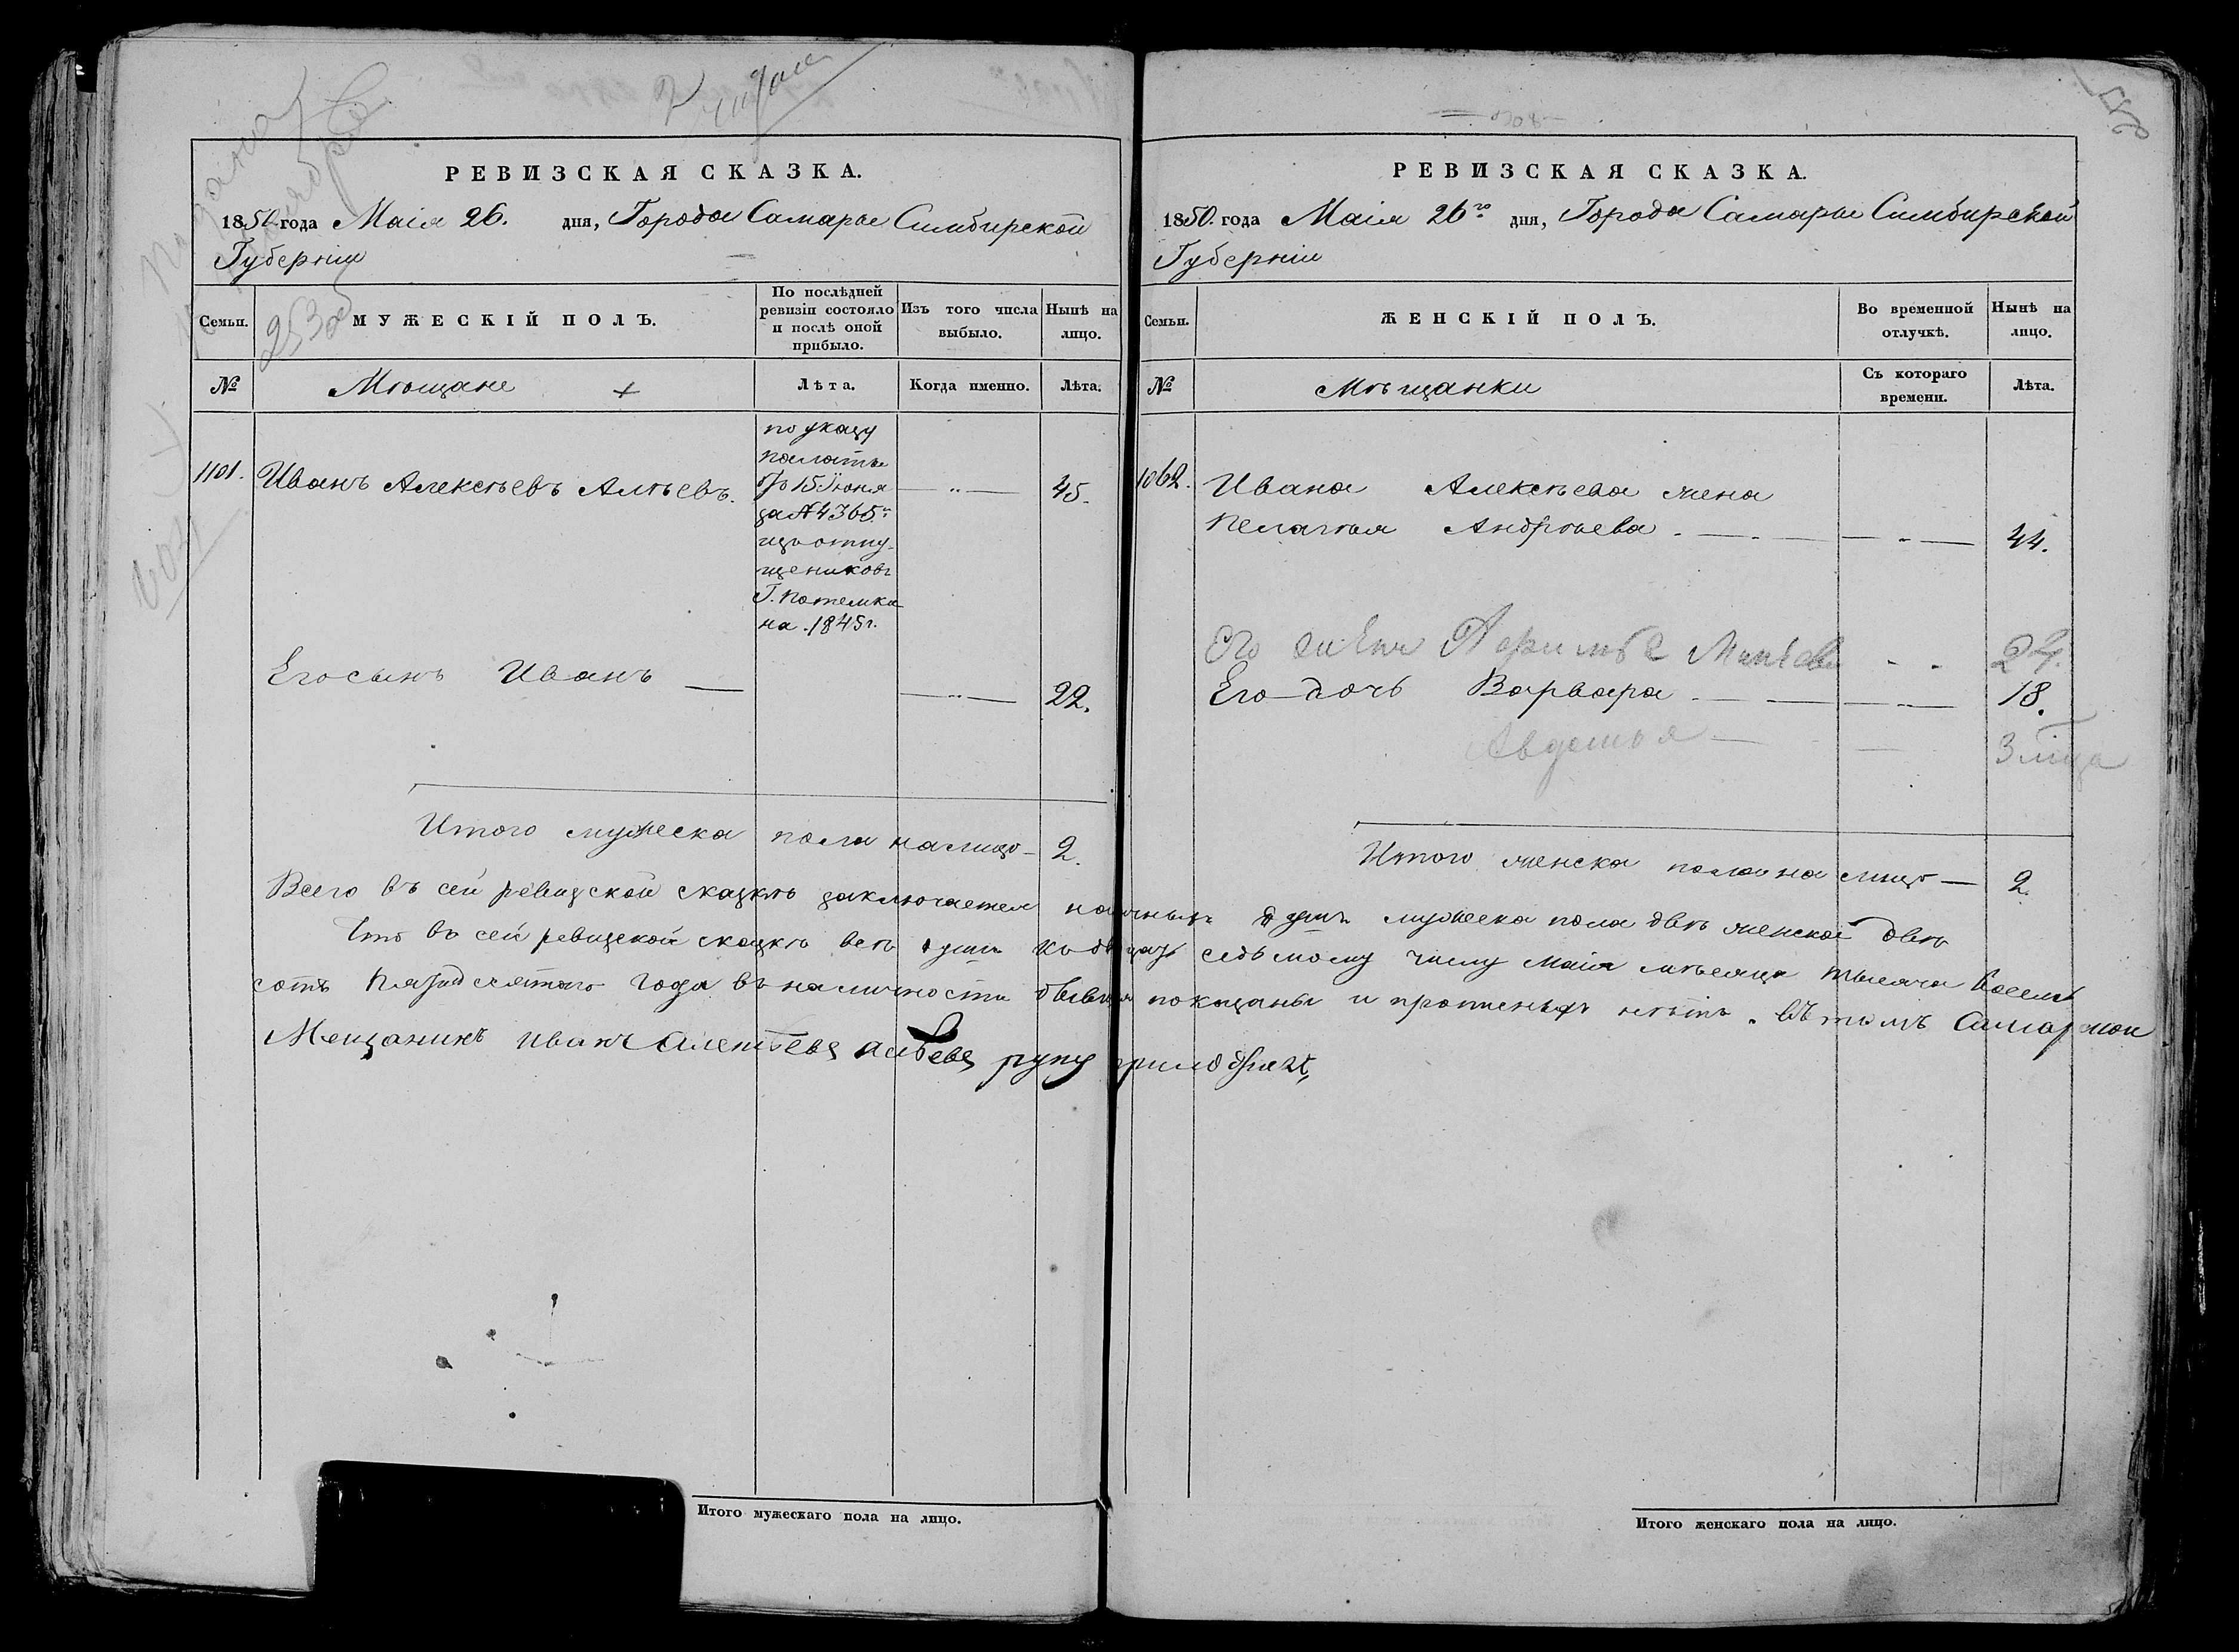 РЕВИЗСКАЯ СКАЗКА.
1850 года Маія 26. дня, Города Самары Симбирской
Губерніи
Семьи.
МУЖЕСКІЙ ПОЛЪ.
По послѣдней ревизіи состояло и послѣ оной прибыло.
Изъ того числа выбыло.
Нынѣ на лицо.
№
Мѣщане
Лѣта.
Когда именно.
Лѣта.
1101. Иванъ Алексѣевъ Алѣевъ.
по указу
палаты
15 Іюня
за № 4365
изъ отпу-
щениковъ
Г. Потемки-
на. 1845 г.
45.
Его сынъ Иванъ
22.
Итого мужеска пола на лицо 2.
РЕВИЗСКАЯ СКАЗКА.
1850. года Маія 26го дня, Города Самары Симбирской
Губерніи
Семьи.
ЖЕНСКІЙ ПОЛЪ.
Во временной отлучкѣ.
Нынѣ на лицо.
№
Мѣщанки
Съ котораго времени.
Лѣта.
1062. Ивана Алексѣева жена
Пелагѣя Андрѣева 44.
Его 24.
Его дочь Варвара 18.
Авдотья
Итого женска пола на лицо 2.
Всего въ сей ревизской сказкѣ заключается наличныхъ душъ мужеска пола двѣ женска двѣ
Что въ сей ревизской сказкѣ всѣ души къ двадцать седьмому числу Маія мѣсяца тысяча восемь
сотъ пятьдесятаго года въ наличности бывшія показаны и прописныхъ нѣтъ. въ томъ Самарской
Мещанинъ иванъ Алексѣевъ алѣевъ руку приложилъ
Итого мужескаго пола на лицо.
Итого женскаго пола на лицо.